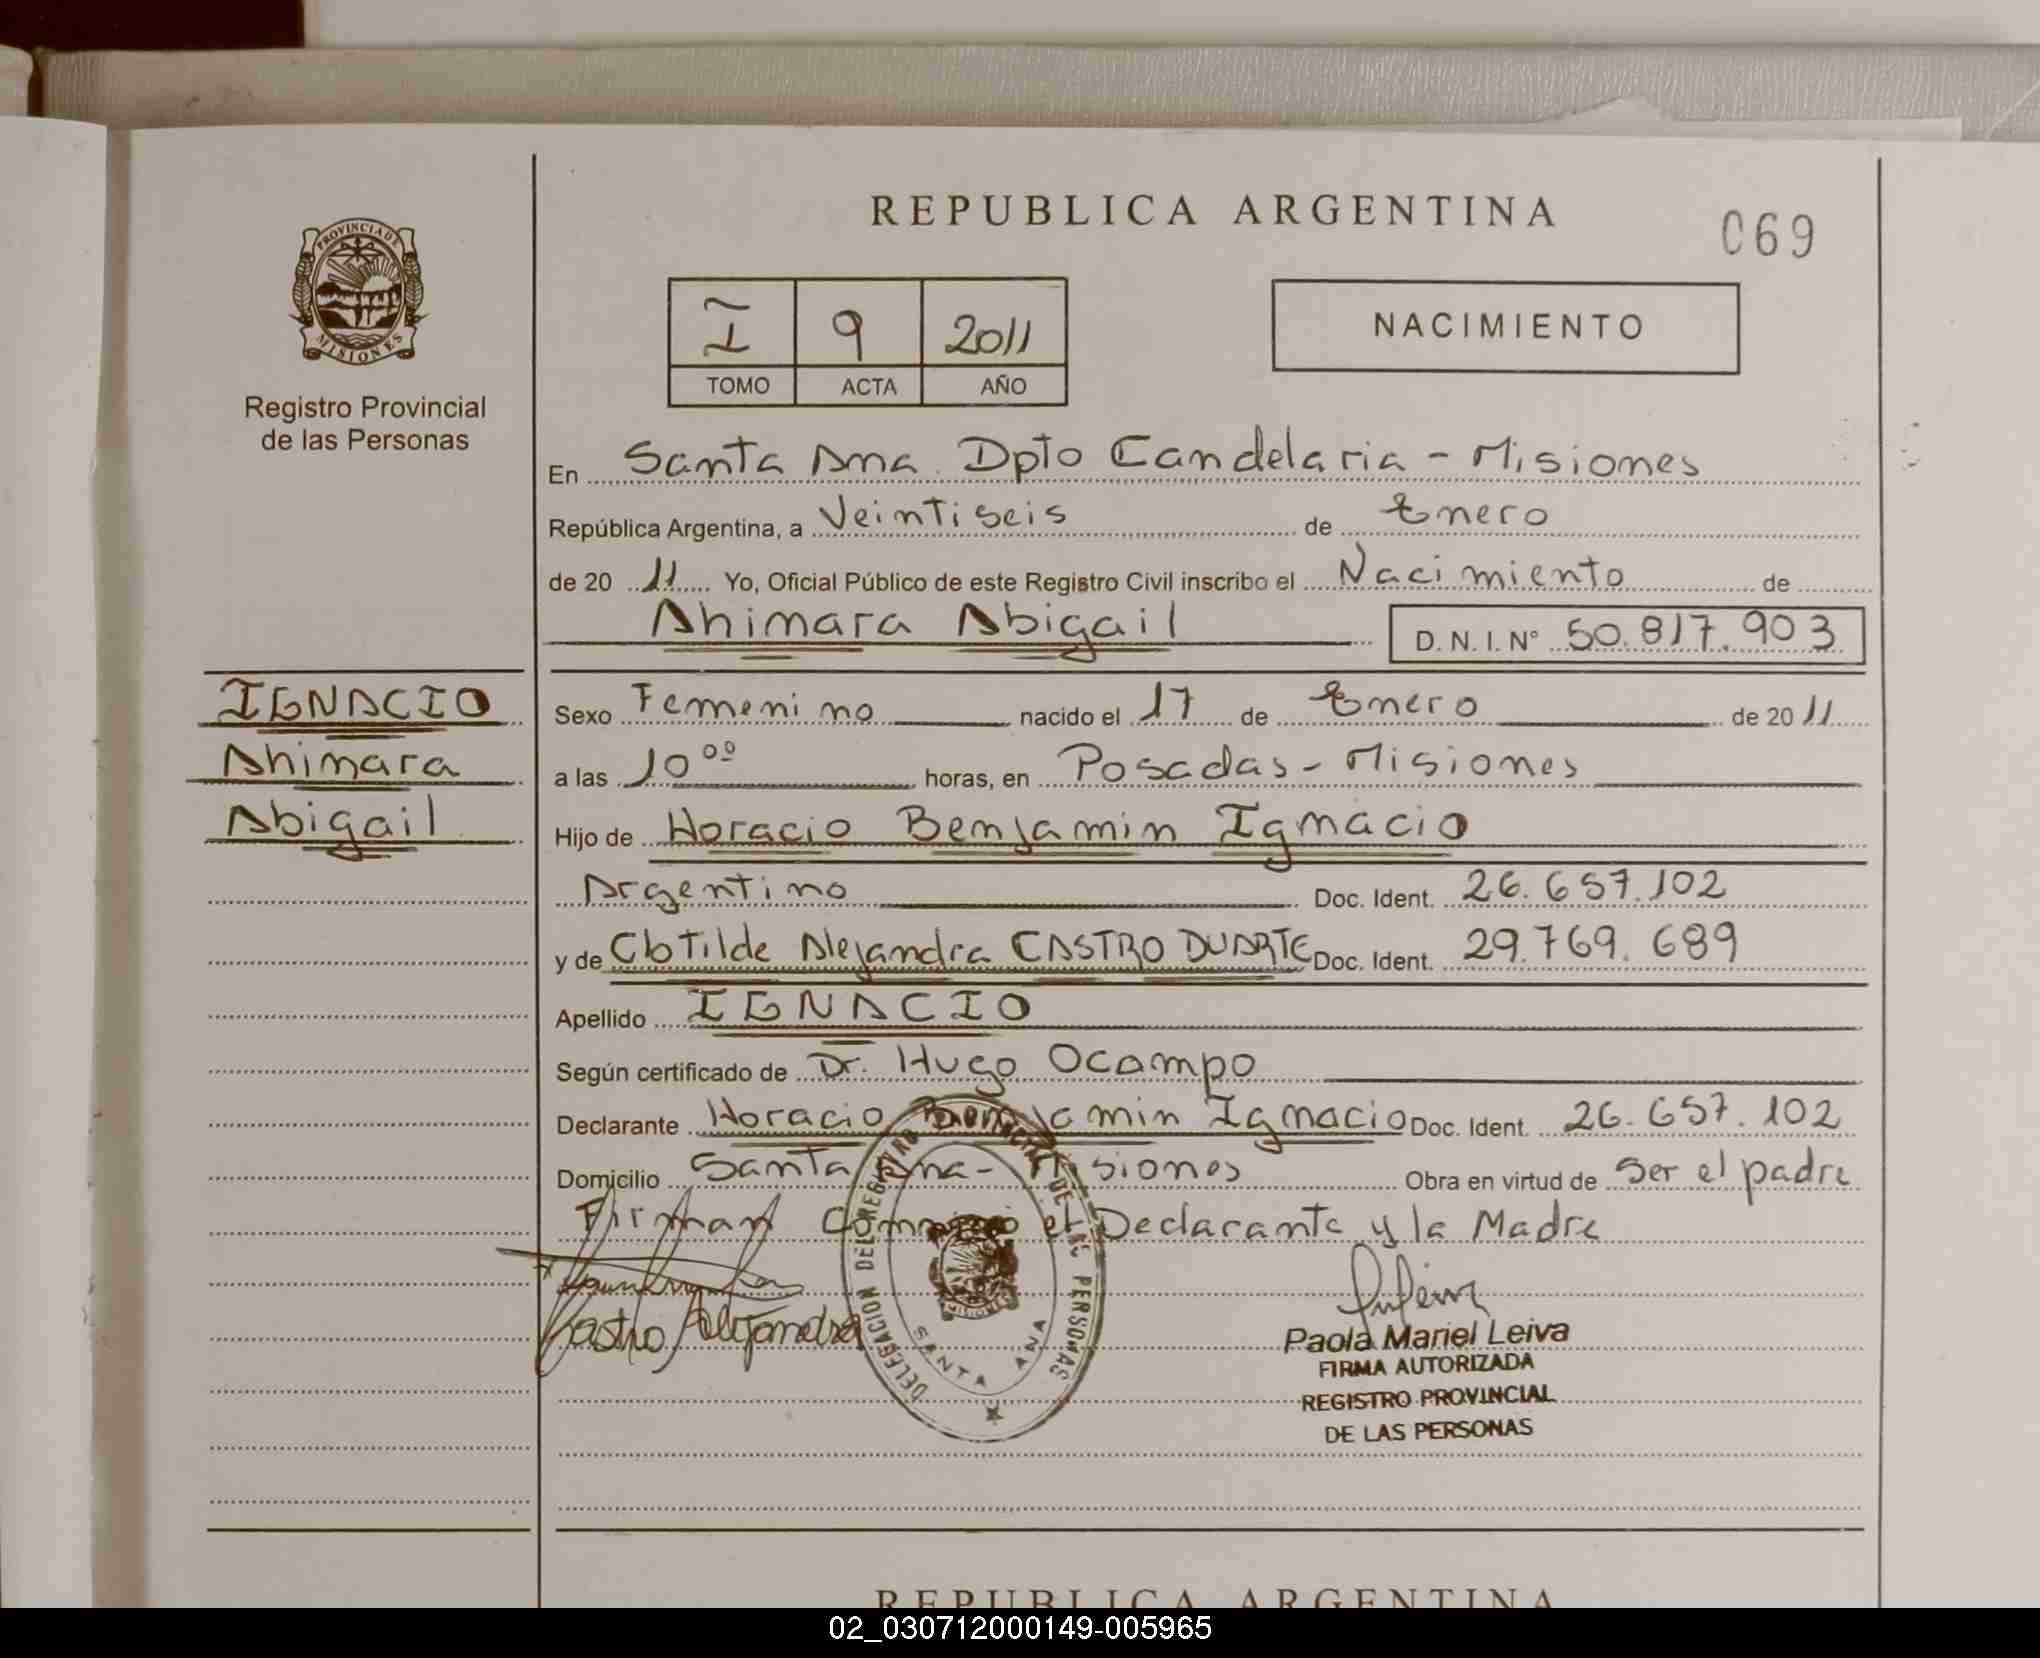 REPUBLICA ARGENTINA
069
PROVINCIA DE
MISIONES
Registro Provincial
de las Personas
I 9 2011
TOMO ACTA AÑO
NACIMIENTO
En Santa Ana. Dpto Candelaria - Misiones
República Argentina, a Veintiseis de Enero
de 20 11 Yo, Oficial Público de este Registro Civil inscribo el Nacimiento de
Ahimara Abigail D. N. I. N° 50.817.903
IGNACIO
Ahimara
Abigail
Sexo Femenino nacido el 17 de Enero de 20 11
a las 10°° horas, en Posadas - Misiones
Hijo de Horacio Benjamin Ignacio
Argentino Doc. Ident. 26.657.102
y de Clotilde Alejandra CASTRO DUARTE Doc. Ident. 29.769.689
Apellido IGNACIO
Según certificado de Dr. Hugo Ocampo
Declarante Horacio Benjamin Ignacio Doc. Ident. 26.657.102
Domicilio Santa Ana - Misiones Obra en virtud de Ser el padre
Firman conmigo el Declarante y la Madre
Castro Alejandra
DELEGACION DEL REGISTRO PROVINCIAL DE LAS PERSONAS
MISIONES
SANTA ANA
Paola Mariel Leiva
FIRMA AUTORIZADA
REGISTRO PROVINCIAL
DE LAS PERSONAS
REPUBLICA ARGENTINA
02_030712000149-005965